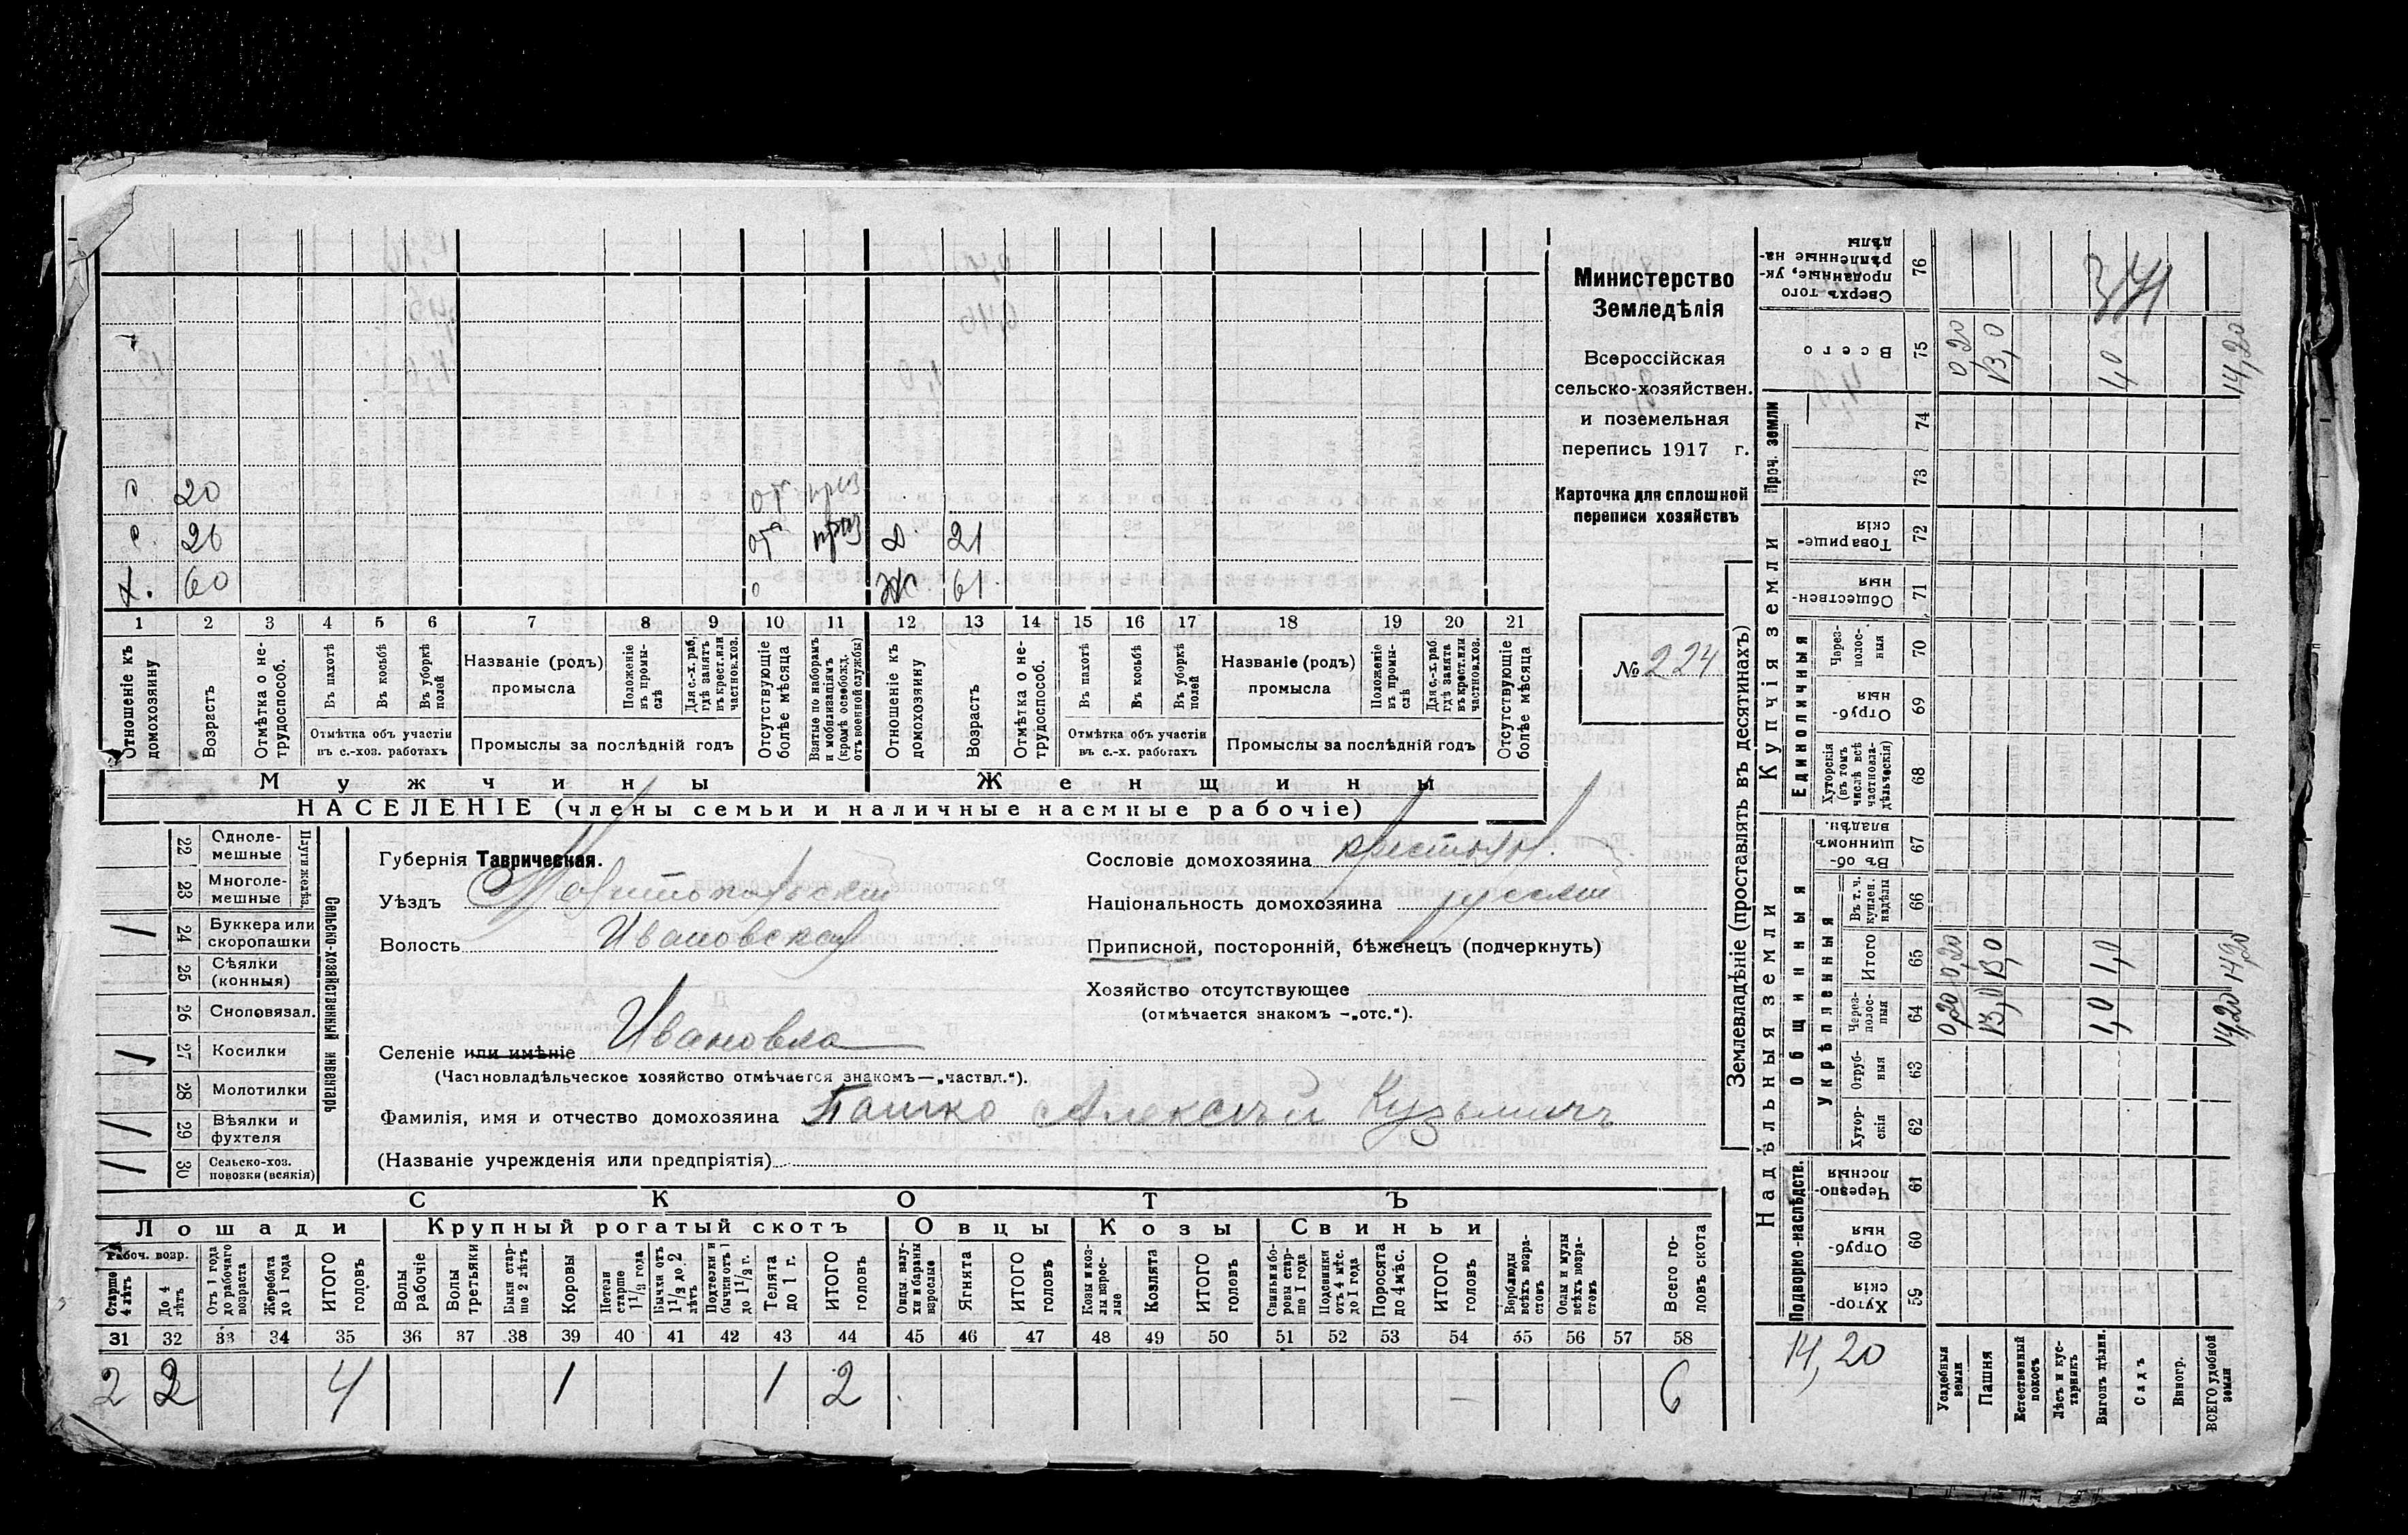 с. 20 от. приз
с. 26 от. приз Д. 21
х. 60 о Ж. 61
1 2 3 4 5 6 7 8 9 10 11 12 13 14 15 16 17 18 19 20 21
Отношеніе къ домохозяину
Возрастъ
Отмѣтка о не-трудоспособ.
Въ пахотѣ
Въ косьбѣ
Въ уборкѣ полей
Отмѣтка объ участіи
въ с.-хоз. работахъ
Названіе (родъ)
промысла
Положеніе въ промы-слѣ
Для с.-х. раб, гдѣ занятъ въ крест. или частнов. хоз.
Промыслы за послѣдній годъ
Отсутствующіе болѣе мѣсяца
Взятые по наборамъ и мобилизаціямъ (кромѣ освобожд. отъ военной службы)
Отношеніе къ домохозяину
Возрастъ
Отмѣтка о не-трудоспособ.
Въ пахотѣ
Въ косьбѣ
Въ уборкѣ полей
Отмѣтка объ участіи
въ с.-х. работахъ
Названіе (родъ)
промысла
Положеніе въ промы-слѣ
Для с.-х. раб. гдѣ занята въ крест. или частнов. хоз.
Промыслы за послѣдній годъ
Отсутствующіе болѣе мѣсяца
Мужчины Женщины
НАСЕЛЕНІЕ (члены семьи и наличные наемные рабочіе)
Министерство
Земледѣлія
Всероссійская
сельско-хозяйствен.
и поземельная
перепись 1917 г.
Карточка для сплошной
переписи хозяйствъ
№ 224
Сельско-хозяйственный инвентарь
Плуги желѣз.
22 Одноле-мешные
23 Многоле-мешные
24 Буккера или скоропашки 1
25 Сѣялки (конныя)
26 Сноповязал.
27 Косилки 1
28 Молотилки
29 Вѣялки и фухтеля 1
30 Сельско-хоз. повозки (всякія) 1
Губернія Таврическая.
Уѣздъ Мелитопольский
Волость Ивановская
Селеніе или имѣніе Ивановка
(Частновладѣльческое хозяйство отмѣчается знакомъ—„частвл.“).
Фамилія, имя и отчество домохозяина Пашко Алексѣй Кузьмичъ
(Названіе учрежденія или предпріятія)
Сословіе домохозяина крестьян.
Національность домохозяина русский
Приписной, посторонній, бѣженецъ (подчеркнуть)
Хозяйство отсутствующее
(отмѣчается знакомъ —„отс.“).
СКОТЪ
Лошади Крупный рогатый скотъ Овцы Козы Свиньи
Рабоч. возр.
Старше 4 лѣтъ
До 4 лѣтъ
Отъ 1 года до рабочаго возраста
Жеребята до 1 года
ИТОГО головъ
Волы рабочіе
Волы третьяки
Быки стар-ше 2 лѣтъ
Коровы
Нетели старше 1½ года
Бычки отъ 1½ до 2 лѣтъ
Подтелки и бычки отъ 1 до 1½ г.
Телята до 1 г.
ИТОГО головъ
Овцы, валу-хи и бараны взрослые
Ягнята
ИТОГО головъ
Козы и коз-лы взрос-лые
Козлята
ИТОГО головъ
Свиньи и бо-ровы стар-ше 1 года
Подсвинки отъ 4 мѣс. до 1 года
Поросята до 4 мѣс.
ИТОГО головъ
Верблюды всѣхъ возра-стовъ
Ослы и мулы всѣхъ возра-стовъ
Всего го-ловъ скота
31 32 33 34 35 36 37 38 39 40 41 42 43 44 45 46 47 48 49 50 51 52 53 54 55 56 57 58
2 2 4 1 1 2 — 6
Землевладѣніе (проставлять въ десятинахъ)
Надѣльныя земли
Купчія земли
Проч. земли
Подворно-наслѣдств.
Общинныя
Укрѣпленныя
Единоличныя
Хутор-скія 59
Отруб-ныя 60
Черезпо-лосныя 61
Хутор-скія 62
Отруб-ныя 63
Черезполос-ныя 64 0,20 13,0 1,0 14,20
Итого 65 0,20 13,0 1,0 14,20
Въ т. ч. куплен. надѣлы 66
Въ об-щинномъ владѣн. 67
Хуторскія (въ томъ числѣ всѣ частновла-дѣльческія) 68
Отруб-ныя 69
Через-полос-ныя 70
Обществен-ныя 71
Товарище-скія 72
73
74
Всего 75 0,20 13,0 1,0 14,20
Сверхъ того проданные, ук-рѣпленные на-дѣлы 76
14,20
Усадебныя земли
Пашня
Естественный покосъ
Лѣсъ и кус-тарникъ
Выгонъ цѣлин.
Садъ
Виногр.
ВСЕГО удобной земли